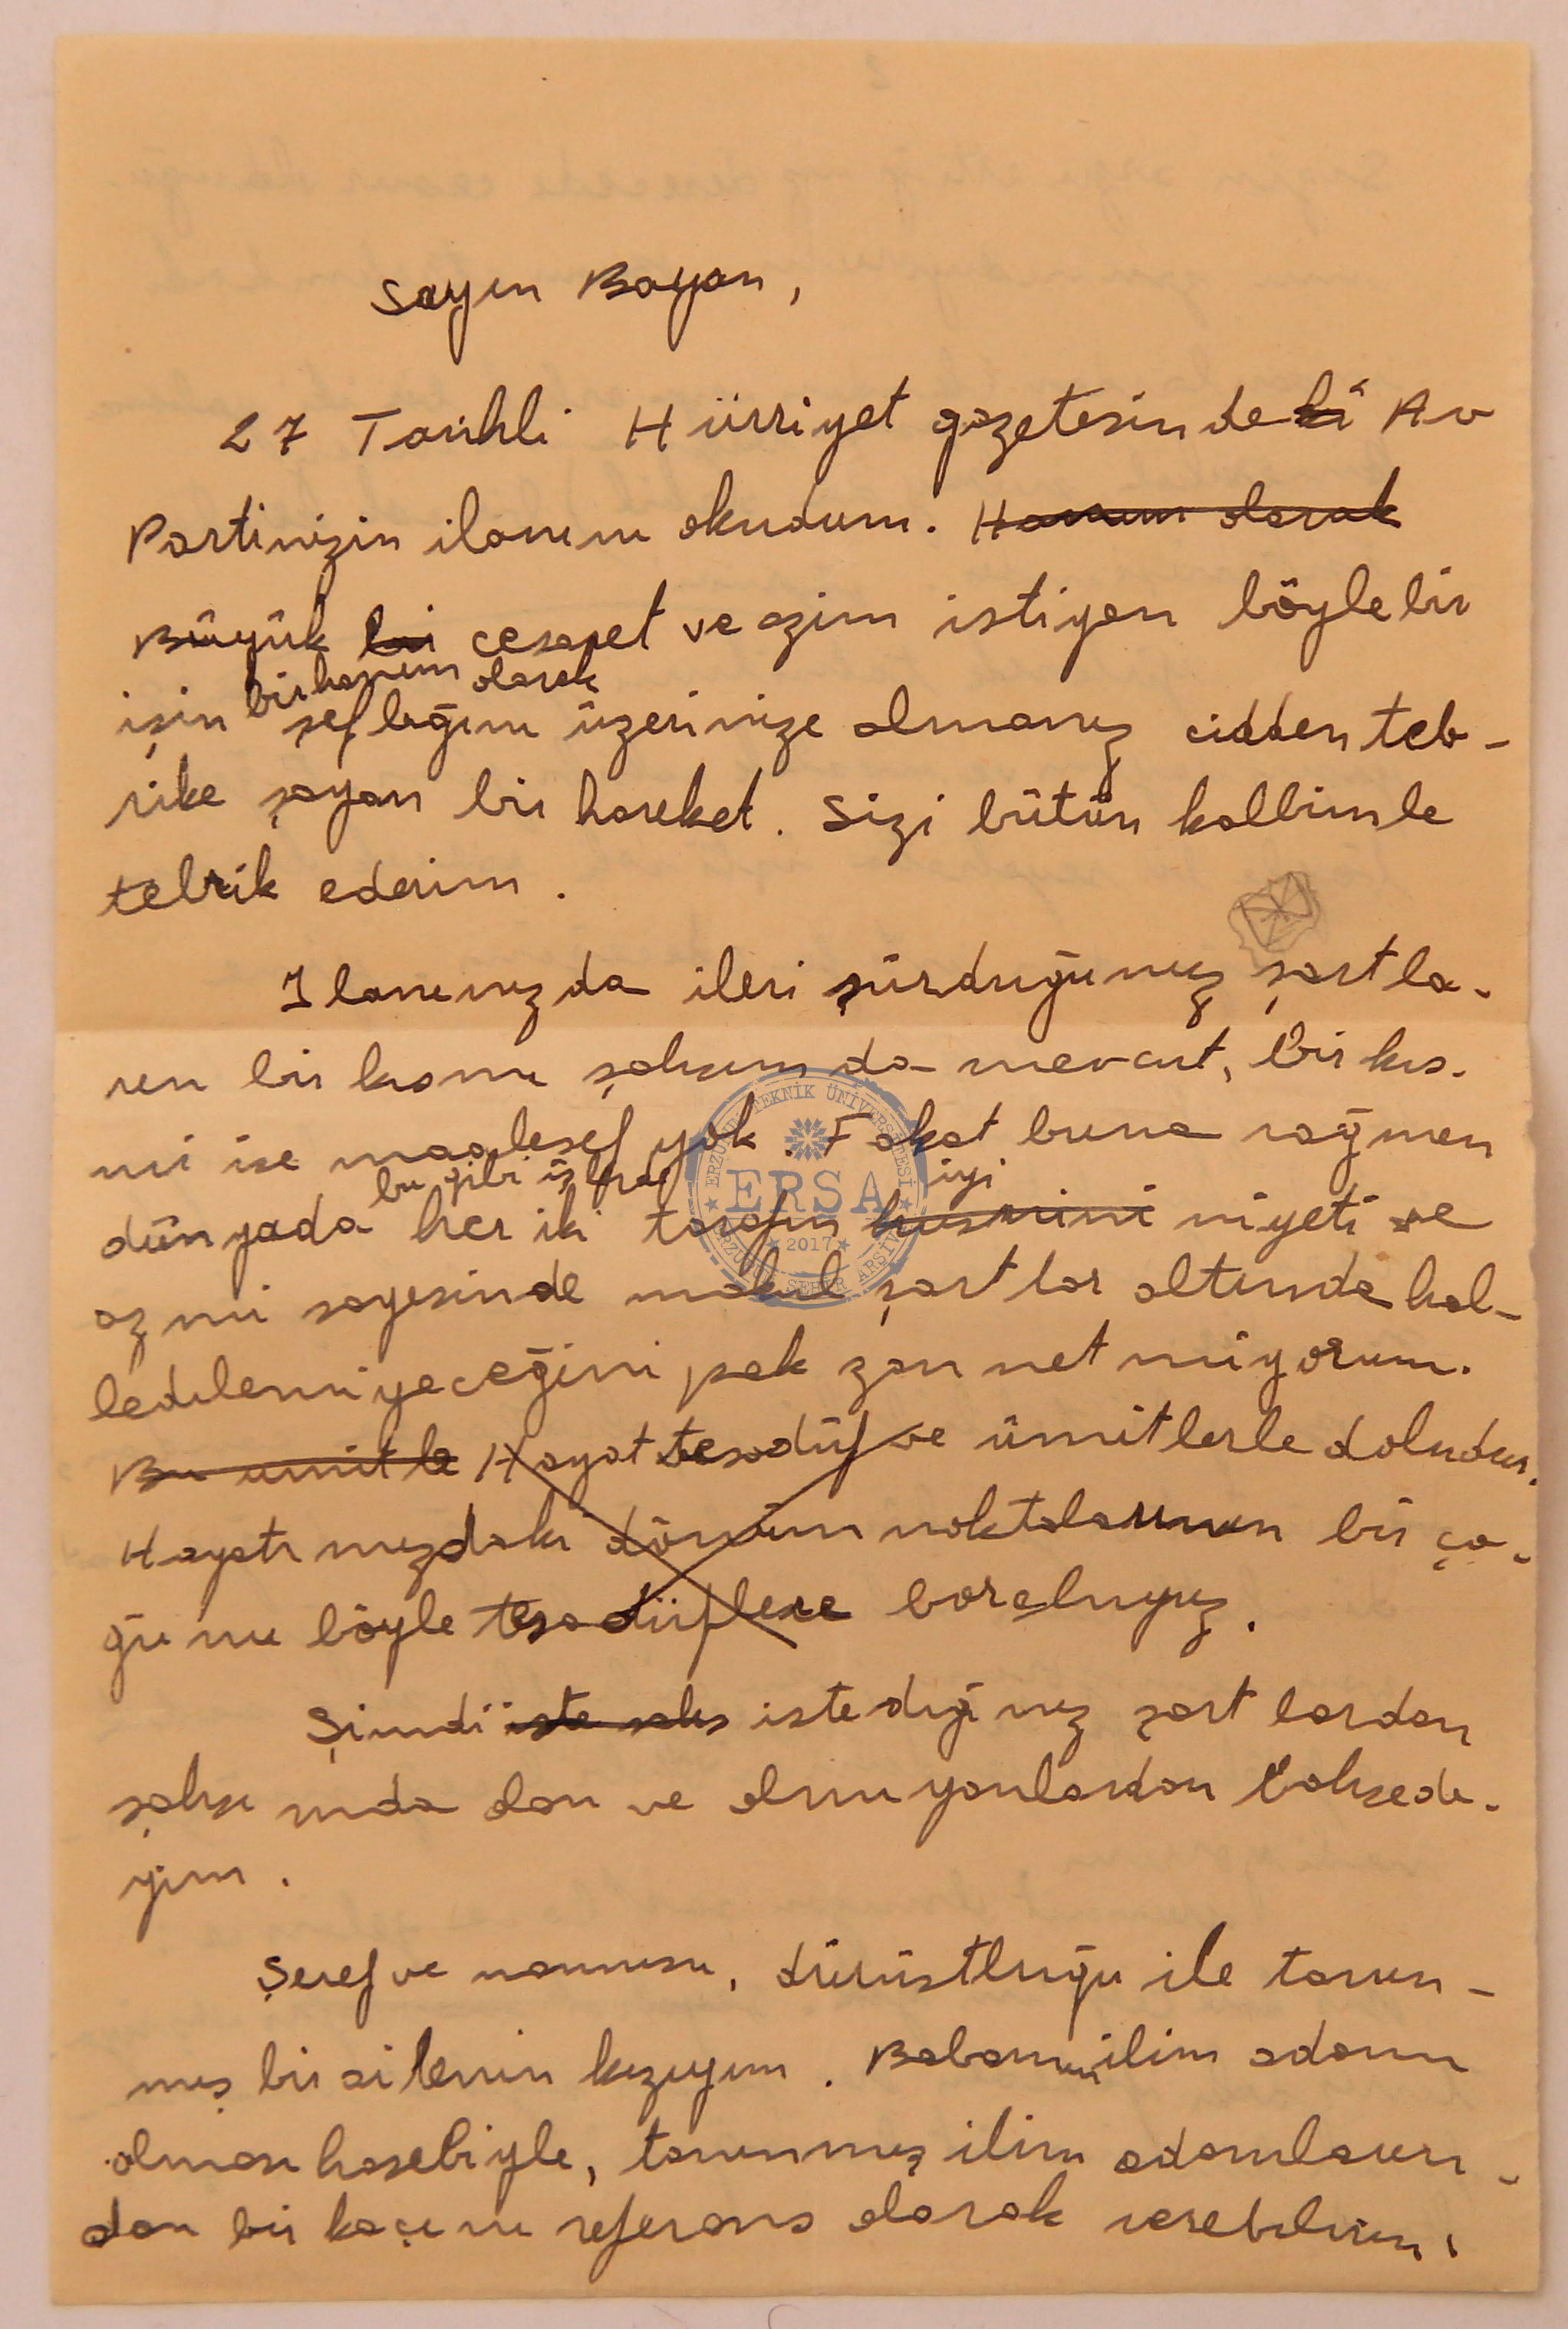 Sayın Bayan,
27 Tarihli Hürriyet gazetesindeki Av
Partinizin ilanını okudum. Hanım olarak
Büyük bir cesaret ve azim istiyen böyle bir
bir hanım olarak
işin şefliğini üzerinize almanız cidden teb-
rike şayan bir hareket. Sizi bütün kalbimle
tebrik ederim.
Ilanınızda ileri sürduğunuz şartla-
rın bir kısmı şahsımda mevcut, bir kıs-
mi ise maalesef yok. Fakat buna rağmen
bu gibi işlerde iyi
dünyada her iki tarafın husnini niyeti ve
azmi sayesinde makul şartlar altında hal-
ledilemiyeceğini pek zannetmiyorum.
Bu ümitle Hayat tesadüf ve ümitlerle doludur.
Hayatımızdaki dönüm noktalarının bir ço-
ğunu böyle tesadüflere borçluyuz.
Şimdi iste şahs istediğiniz şartlardan
şahsımda olan ve olmıyanlardan bahsede-
yim.
Şeref ve namusu, dürüstlüğü ile tanın-
mış bir ailenin kızıyım. Babamın ilim adamı
olması hasebiyle, tanınmış ilim adamların-
dan bir kaçını referans olarak verebilirim.
ERZURUM TEKNİK ÜNİVERSİTESİ
ERSA
2017
ERZURUM ŞEHİR ARŞİVİ